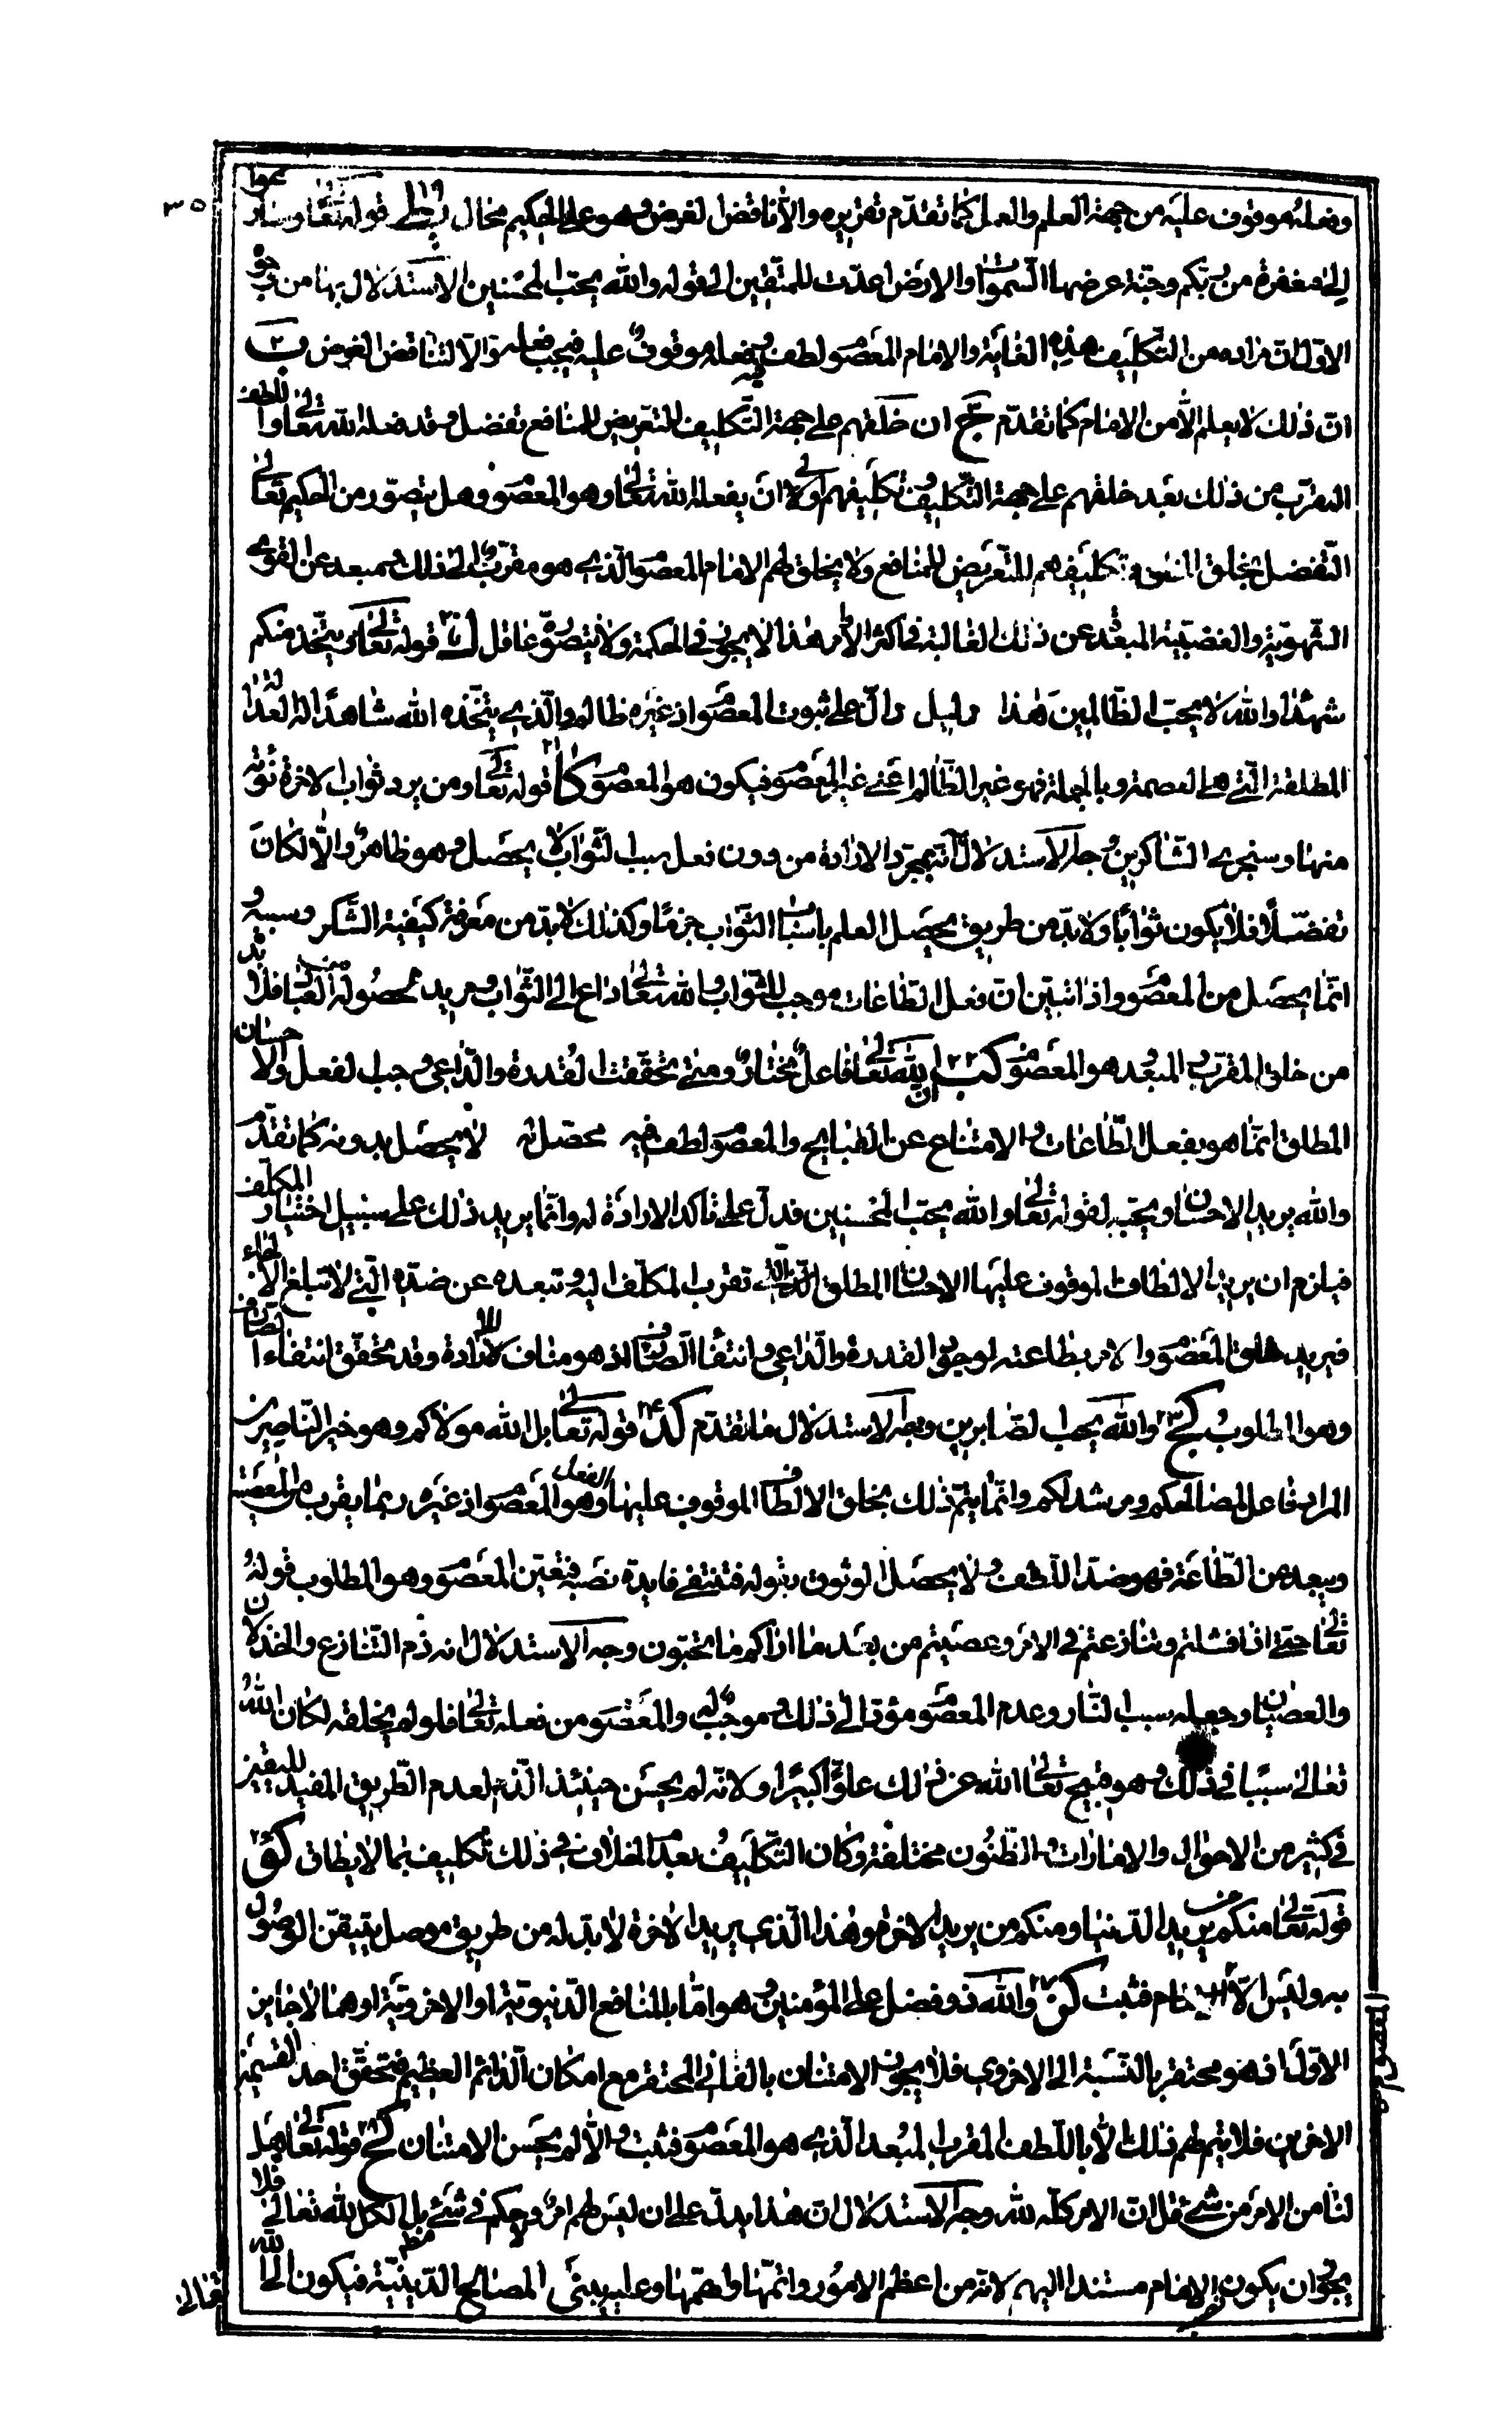 ٣٥
وفعله موقوف عليه من جهة العلم والعمل كما تقدّم تقريره والّا ناقض لغرضه وهو على الحكيم محال يط١٩ قوله تعا وسارعوا
إلى مغفرة من ربّكم وجنّة عرضها السّموات والارض اعدّت للمتّقين الى قوله والله يحبّ المحسنين الاستدلال بها من وجوه
الاوّل انّ مراده من التّكليف هذه الغاية والامام المعصو لطف فيه وفعله موقوف عليه فيجب فعله والّا لتناقض الغرض ب٢
انّ ذلك لا يعلم الّا من الامام كما تقدّم ج٣ ان خلقهم على جهة التّكليف للتعريض للمنافع تفضل وقد فعله الله تعالى واللطف
المقرّب من ذلك بعد خلقهم على جهة التّكليف وتكليفهم اولى ان يفعله الله تعالى وهو المعصو وهل يتصوّر من الحكيم تعالى
التّفضل بخلق البشر وتكليفهم للتّعريض للمنافع ولا يخلق لهم الامام المعصو الّذي هو مقرّب الى ذلك ومبعد عن القوى
الشّهويّة والغضبيّة المبعّدة عن ذلك الغالبة في اكثر الامر هذا لا يجوز في الحكمة ولا يتصوّره عاقل ك٢٠ قوله تعالى ويتّخذ منكم
شهداء والله لا يحبّ الظّالمين هذا دليل دالّ على ثبوت المعصو اذ غيره ظالم والّذي يتّخذه الله شاهدا له العدالة
المطلقة الّتي هي العصمة وبالجملة فهو غير الظّالم اعني غير المعصو فيكون هو المعصو كا٢١ قوله تعالى ومن يرد ثواب الاخرة نؤته
منها وسنجزي الشّاكرين وجه الاستدلال انّ بمجرّد الارادة من دون فعل سبب الثّواب لا يحصل وهو ظاهر والّا لكان
تفضّلا فلا يكون ثوابا ولا بدّ من طريق يحصل العلم باسباب الثّواب جزما وكذلك لا بدّ من معرفة كيفية الشّكر وسببه و
انّما يحصل من المعصو واذا تبيّن انّ فعل الطّاعات موجب للثّواب والله تعالى داع الى الثّواب ومريد لحصوله من العباد فلا بد
من خلق المقرّب المبعّد هو المعصو كب٢٢ انّ الله تعالى فاعل مختار ومتى تحقّقت القدرة والّداعي وجب الفعل والاحسان
المطلق انّما هو بفعل الطّاعات والامتناع عن القبايح والمعصو لطف فيه محصل له لا يحصل بدونه كما تقدّم
والله يريد الاحسان ويحبه لقوله تعالى والله يحبّ المحسنين فدلّ على تاكد الارادة له وانّما يريد ذلك على سبيل اختيار المكلّف
فيلزم ان يريد الالطاف الموقوف عليها الاحسان المطلق الّتي تقرب المكلّف اليه وتبعده عن ضدّه الّتي لا تبلغ الالجاء
فيريد خلق المعصو والامر بطاعته لوجود القدرة والّداعي وانتفاء الصّارف اذ هو مناف للارادة وقد تحقّق انتفاء الصّارف
وهو المطلوب كج٢٣ والله يحبّ الصّابرين وجه الاستدلال ما تقدم كد٢٤ قوله تعالى بل الله مولاكم وهو خير النّاصرين
المراد فاعل لمصالحكم ومرشد لكم وانّما يتمّ ذلك بخلق الالطاف الموقوف عليها الفعل وهو المعصو اذ غيره ربما يقرب من المعصية
ويبعد من الطّاعة فهو ضدّ اللّطف ولا يحصل الوثوق بقوله فتنتفي فايدة نصبه فتعيّن المعصو وهو المطلوب قوله
تعالى حتى اذا فشلتم وتنازعتم في الامر وعصيتم من بعد ما اراكم ما تحبّون وجه الاستدلال انه ذم التّنازع والخذلان
والعصيان وجعله سبب النّار وعدم المعصو مؤد الى ذلك وموجب له والمعصو من فعله تعالى فلو لم يخلقه لكان الله
تعالى سببا في ذلك وهو قبيح تعالى الله عن ذلك علوّا كبيرا ولانّه لم يحسن حينئذ الّذم لعدم الطّريق المفيد لليقين
في كثير من الاحوال والامارات والظّنون مختلفة وكان التّكليف بعدم الخلاف في ذلك تكليف بما لا يطاق كو٢٦
قوله تعالى منكم من يريد الدّنيا ومنكم من يريد الاخرة وهذا الّذي يريد الاخرة لا بد له من طريق موصل يتيقّن الوصول
به وليس الّا الامام فثبت كز٢٧ والله ذو فضل على المؤمنين وهو امّا بالمنافع الدّنيويّة او الاخرويّة او هما لا جايز
الاوّل اذ هو محتقر بالنّسبة الى الاخروي فلا يجوز الامتنان بالفاني المحتقر مع امكان الدّائم العظيم فتحقّق احد القسمين
الاخرين فلا يتم لهم ذلك الّا باللّطف المقرب المبعد الّذي هو المعصو فثبت والّا لم يحسن الامتنان كح٢٨ قوله تعالى هل
لنا من الامر من شيء قل انّ الامر كلّه لله وجه الاستدلال انّ هذا يدلّ على ان ليس لهم امر وحكم في شيء بل الكل لله تعالى فلا
يجوز ان يكون الامام مستندا اليهم لانّه من اعظم الامور واتمّها واهمّها وعليه يبتنى المصالح الدّينيّة فيكون الى الله
تعالى